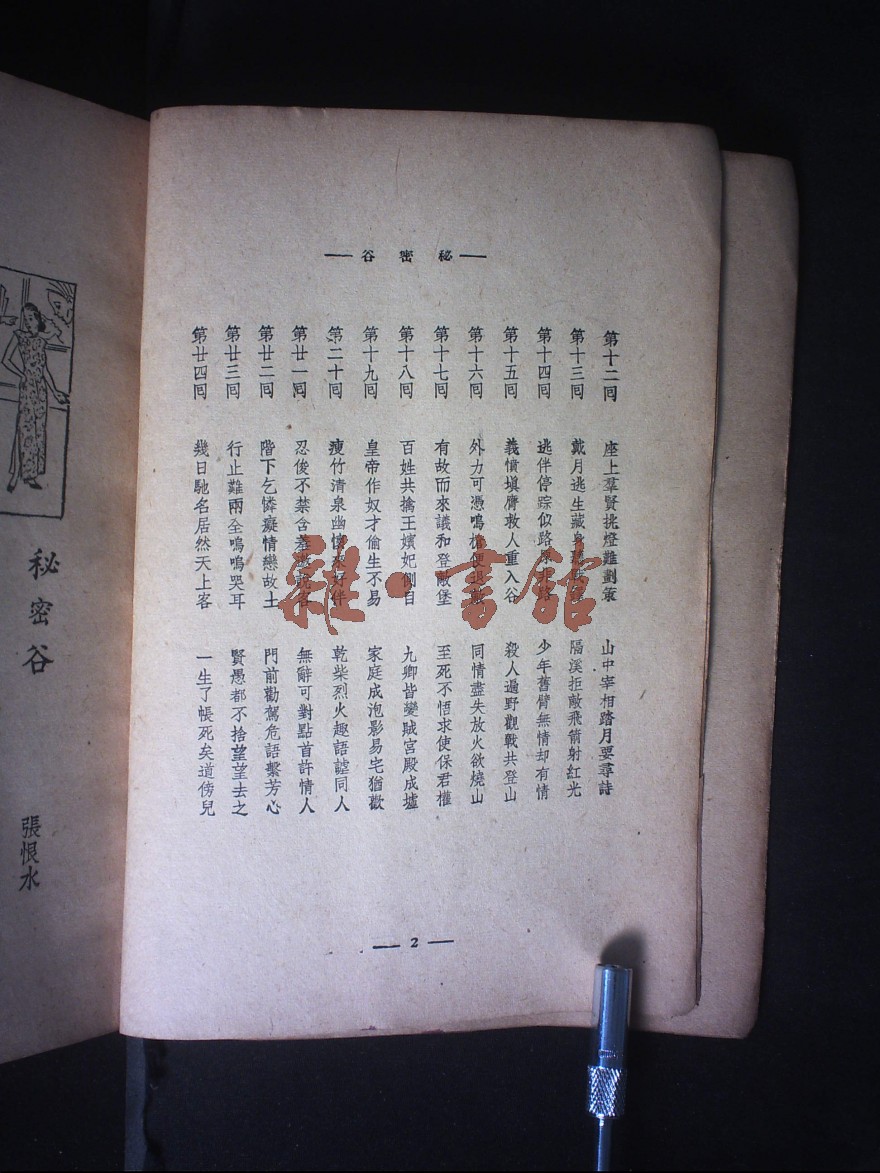 秘密谷
第十二囘 座上羣賢挑燈難劃策 山中宰相踏月要尋詩
第十三囘 戴月逃生藏身 隔溪拒敵飛箭射紅光
第十四囘 逃伴停踪似路 路 少年舊臂無情却有情
第十五囘 義憤塡膺救人重入谷 殺人遍野觀戰共登山
第十六囘 外力可憑鳴 便退 同情盡失放火欲燒山
第十七囘 有故而來議和登敵堡 至死不悟求使保君權
第十八囘 百姓共擒王嬪妃側目 九卿皆變賊宮殿成墟
第十九囘 皇帝作奴才偷生不易 家庭成泡影易宅猶歡
第二十囘 瘦竹清泉幽 來好伴 乾柴烈火趣語謔同人
第廿一囘 忍俊不禁含羞 無辭可對點首許情人
第廿二囘 階下乞憐癡情戀故土 門前勸駕危語繫芳心
第廿三囘 行止難兩全鳴鳴哭耳 賢愚都不捨望望去之
第廿四囘 幾日馳名居然天上客 一生了帳死矣道傍兒
2
秘密谷
張恨水
雜·書館